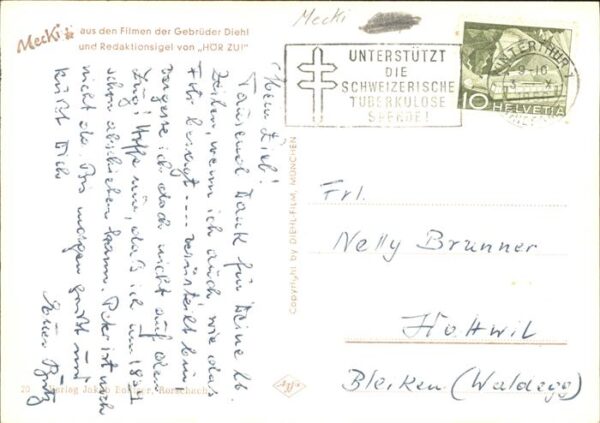 Mecki
aus den Filmen der Gebrüder Diehl
und Redaktionsigel von „HÖR ZU!"
Mecki
UNTERSTÜTZT
DIE
SCHWEIZERISCHE
TUBERKULOSE
SPENDE!
WINTERTHUR 1
10 HELVETIA
Mein Lieb!
Tausend Dank für Deine lb.
Zeilen, wenn ich auch, wie das
Foto besagt... verurteilt bin,
vergesse ich doch nicht auf den
Zug! Hoffe nur, dass ich um 18
schon abschieben kann. Peter ist noch
nicht da. Bis morgen grüßt und
küßt Dich
Copyright by DIEHL-FILM, MÜNCHEN
Frl.
Nelly Brunner
Hottwil
Bleiken (Waldegg)
20
Verlag Jakob Rorschach